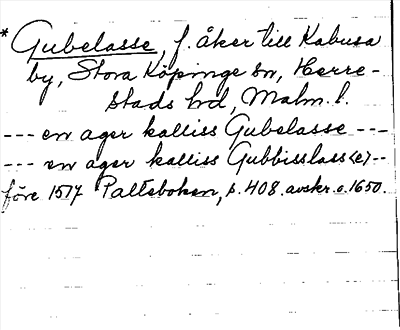 * Gubelasse, f. åker till Kabusa
by, Stora Köpinge sn, Herre-
stads hd, Malm. l.
--- en ager kalliss Gubelasse ---
--- en ager kalliss Gubbisslass(e) --
före 1517 Palteboken, s. 408. avskr. c. 1650.